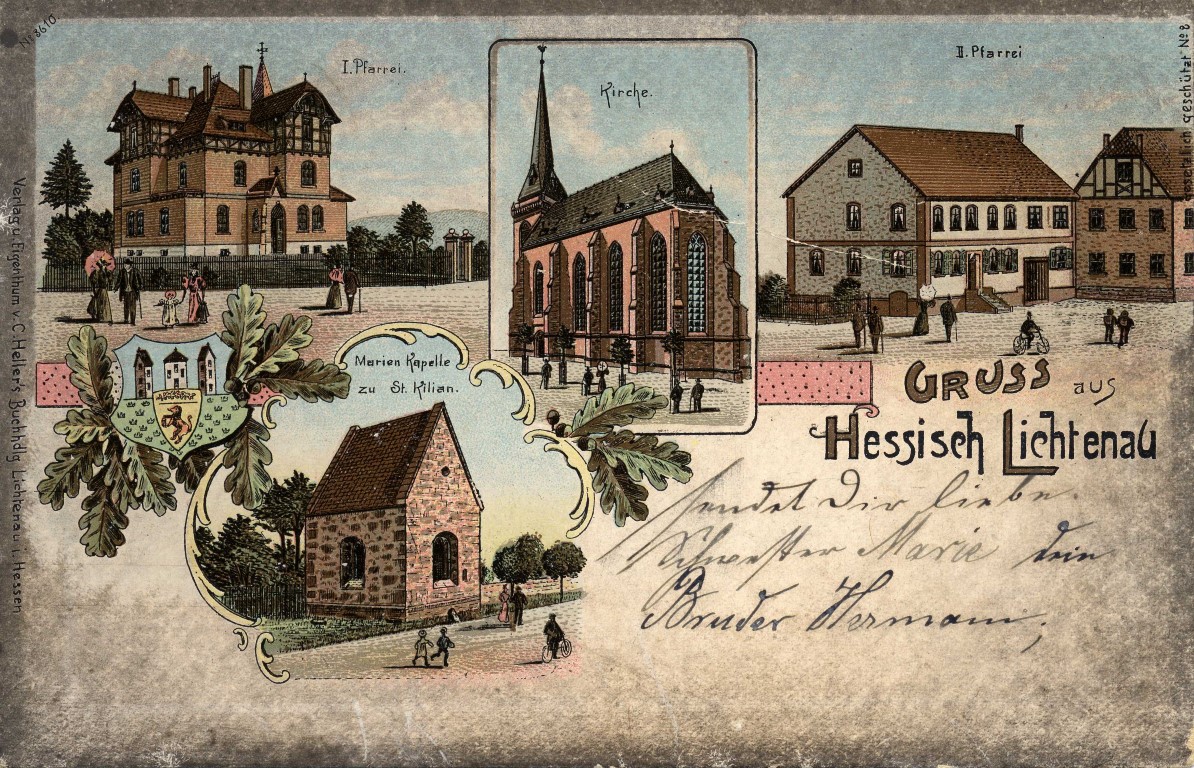 No 8610
I. Pfarrei.
Kirche.
II. Pfarrei
geschützt No 8
Verlag u. Eigenthum v. C. Hellers Buchhdlg Lichtenau i. Hessen
Marien Kapelle
zu St. Kilian.
GRUSS aus
Hessisch Lichtenau
sendet Dir liebe
Schwester Marie dein
Bruder Hermann,